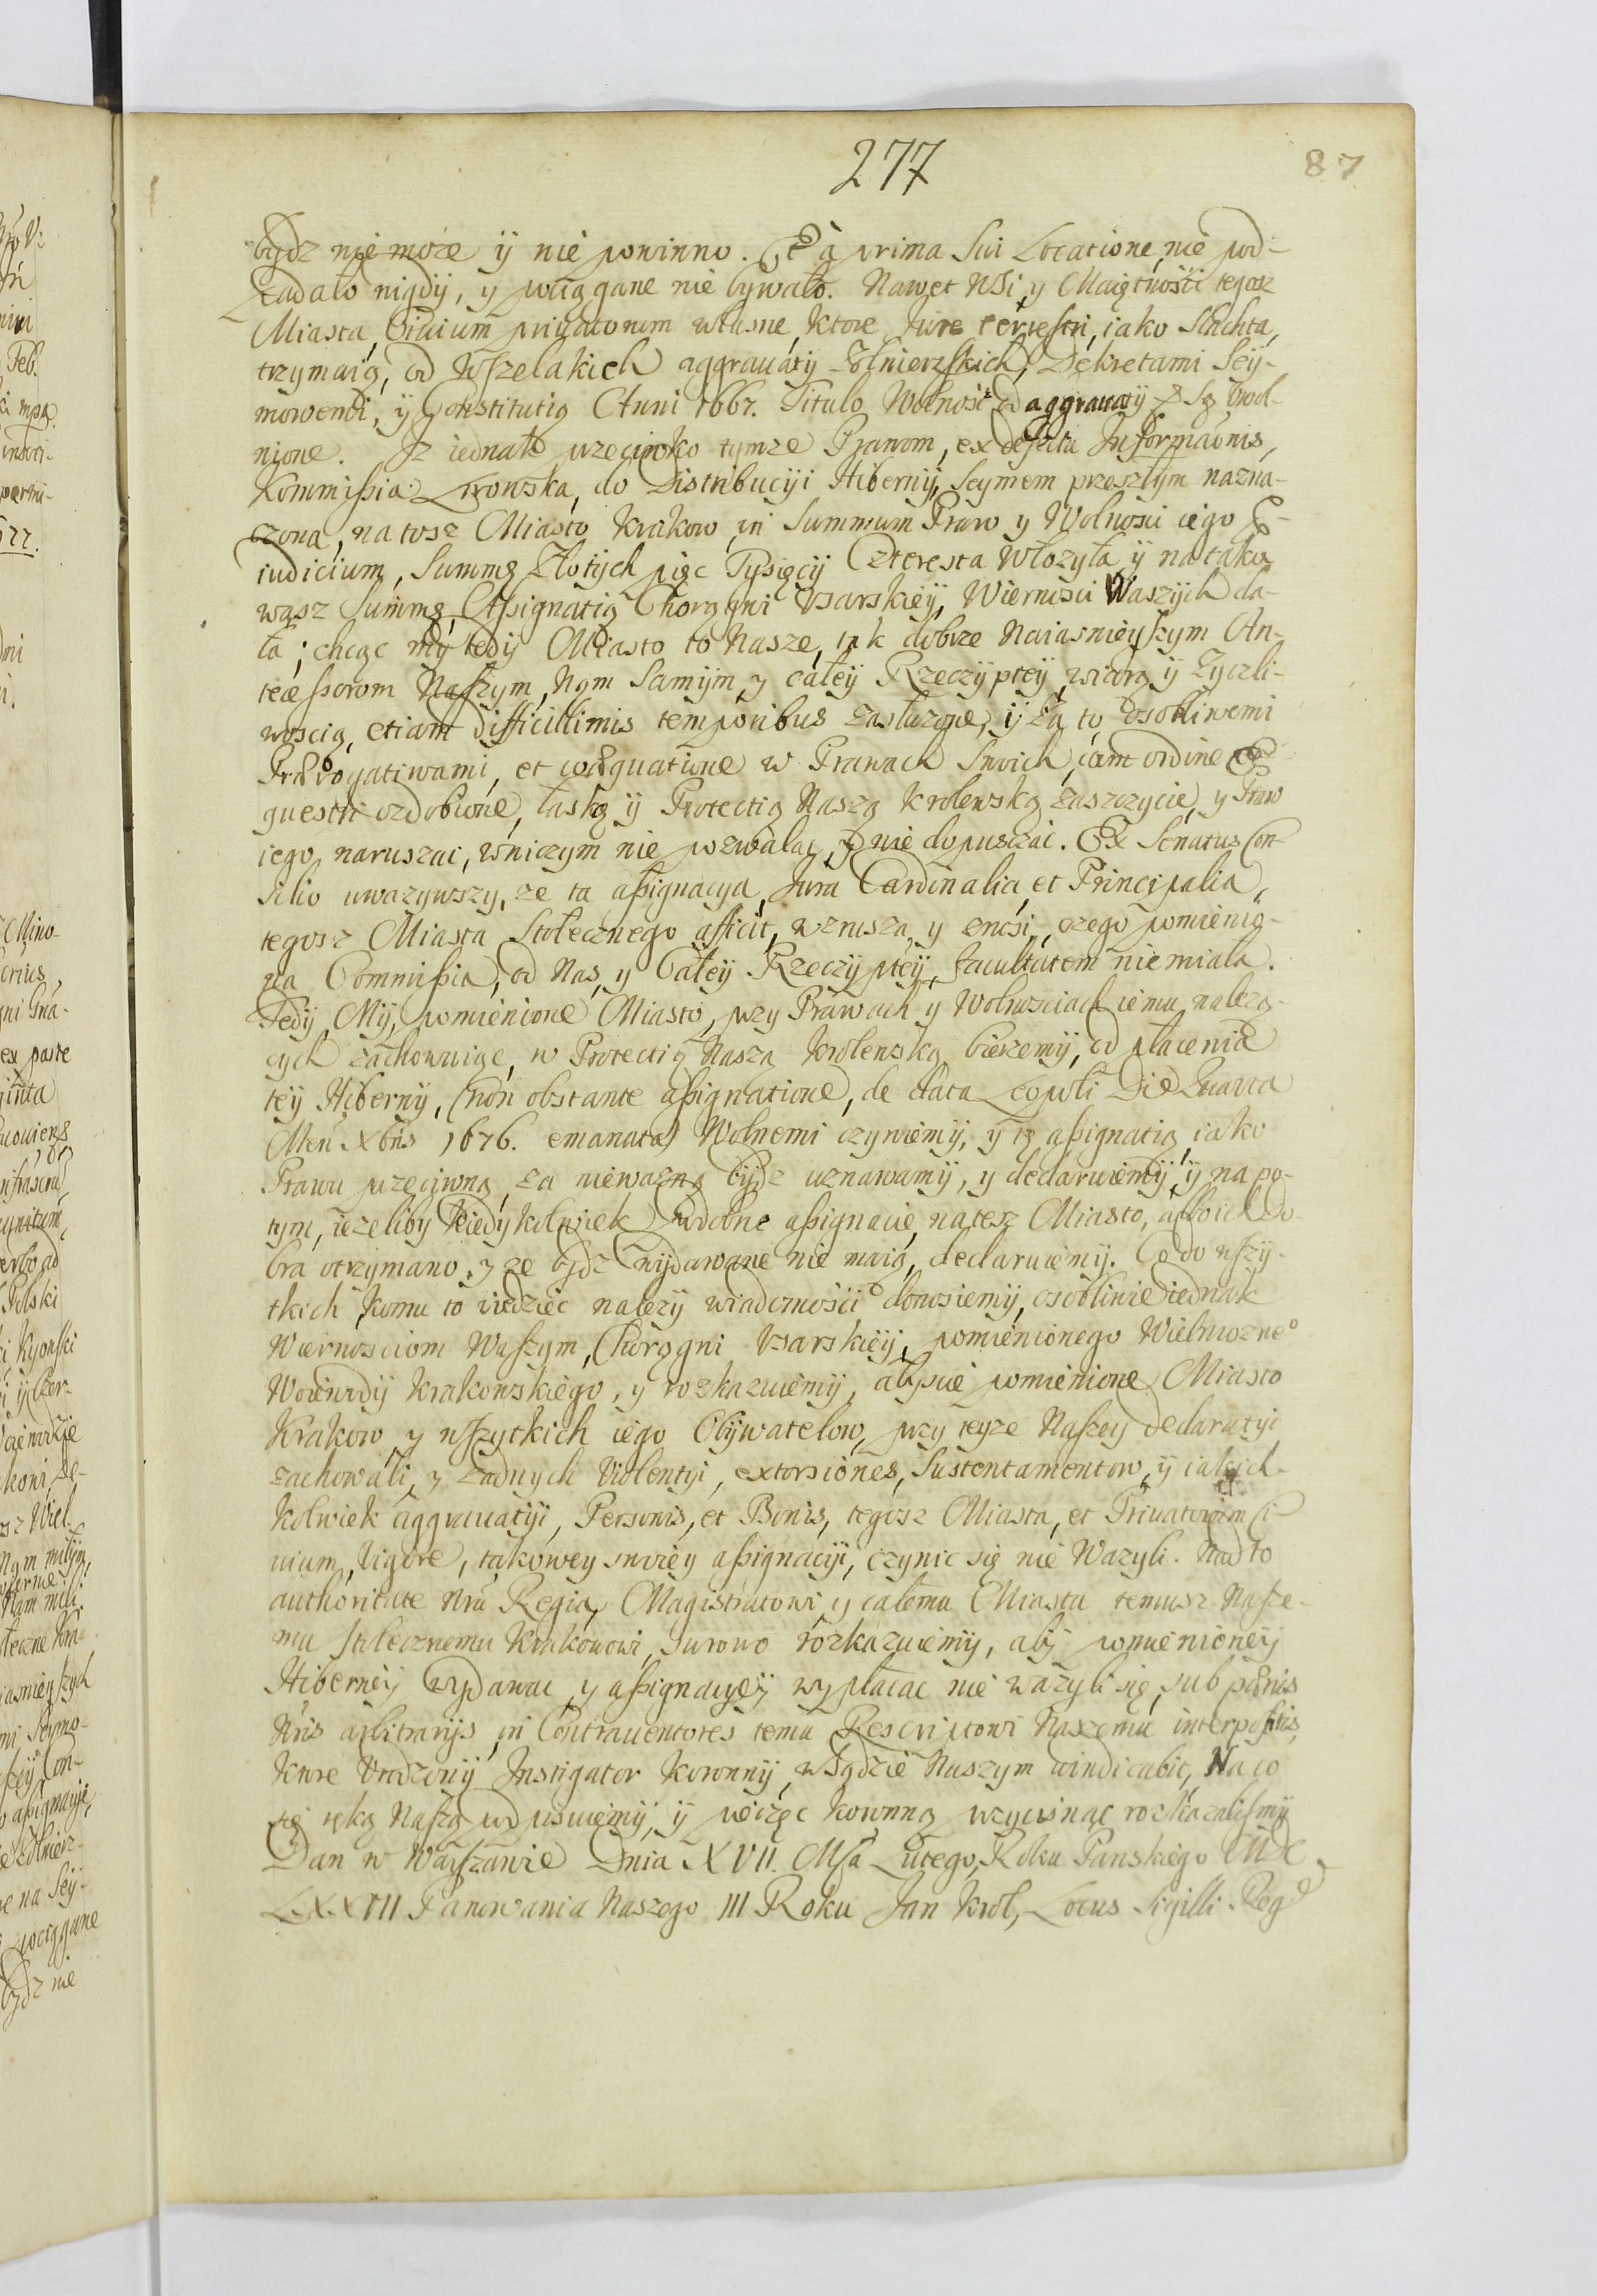 277
87
bydz nie może ÿ nie powinno. Et à prima Sui Locatione, nie pod-
padało nigdÿ, y pociągane nie bywało. Nawet WSi, y Maiętnosci tegosz
Miasta, Ciuium priuatorum własne, ktore Jure terrestri, iako Slachta,
trzymaią, od wszelakich aggrauatÿ Żołnierskich, Dekretami Seÿ-
mowemi, ÿ Constitutią Anni 1667. Titulo Wolnosc od aggrauatÿ są uwol-
nione. Iz iednak przeciwko tymze Prawom, ex defectu Informaōnis,
Kommissia Lwowska, do Distribucÿi Hibernÿ, Seymem przeszłym nazna-
czona, na tosz Miasto Krakow, in Summum Praw y Wolnosci iego Prae-
iudicium, Summę Złotÿch pięc Tysięcÿ Czterysta włozyła ÿ na tako-
wąsz Summę, Assignatią Chorągwi Usarskieÿ, Wiernosci Waszÿch da-
ła; chcąc mÿ tedÿ Miasto to Nasze, tak dobrze Naiasnieyszym An-
tecessorom Naszym, Nąm Samÿm, y całeÿ Rzeczÿpteÿ, wiarą ÿ Zyczli-
woscią, etiam difficillimis temporibus zasłuzone, ÿ za to osobliwemi
Praerogatiwami, et coaequatione w Prawach Swoich, cum ordine E-
questri ozdobione, łaską ÿ Protectią Naszą Krolewską zaszczycic, y Praw
iego naruszac, w niczym nie pozwalac, y nie dopuszczac. Ex Senatus Con-
silio uwazywszy, ze ta assignacya, Jura Cardinalia, et Principalia,
tegosz Miasta Stołecznego afficit, wzrusza, y znosi, czego pomienio-
na Commissia, od Nas, y Całeÿ Rzeczÿpteÿ, facultatem nie miała.
Tedÿ Mÿ, pomienione Miasto, przy Prawach y Wolnosciach iemu nalezą-
cych zachowuiąc, w Protectią Naszą Krolewską bierzemÿ, od płacenia
teÿ Hibernÿ, (non obstante assignatione, de data Leopoli Die Quarta
Men Xbris 1676. emanata) Wolnemi czyniemÿ, ÿ tę assignatią, iako
Prawu przeciwną, za niewazną bÿdz uznawamÿ, y declaruiemÿ, ÿ na po-
tym, iezeliby kiedykolwiek podobne assignacie, na tesz Miasto, albo ich Do-
bra otrzymano, y ze bydz wÿdawane nie maią, declaruiemÿ. Co do wszÿ-
tkich, komu to wiedziec nalezÿ wiadomosci donosiemÿ, osobliwie iednak
Wiernosciom Waszym, Chorągwi Usarskieÿ, pomienionego Wielmozneo
Woiewodÿ Krakowskiego, y rozkazuiemÿ, abyscie pomienione Miasto
Krakow y wszytkich iego Obÿwatelow, przy teyze Naszey declaratÿi
zachowali, y zadnych Violentÿi, extorsiones, Sustentamentow, ÿ iakich-
kolwiek aggrauatÿi, Personis, et Bonis, tegosz Miasta, et Priuatorum Ci-
uium, Vigore, takowey swoiey assignacÿi, czynic się nie Wazyli. Nad to
authoritate Nrā Regia, Magistratowi y całemu Miastu temusz Nasze-
mu stołecznemu Krakowowi, surowo rozkazuiemÿ, abÿ pomienioneÿ
Hiberneÿ wydawac, y assignacyeÿ wypłacac nie wazyli się, sub paenis
Nris arbitrarijs, in Contrauentores temu Rescriptowi Naszemu interpositis,
ktore Urodzonÿ Instigator Koronnÿ, w Sądzie Naszym windicabit, Na co
się ręką Naszą podpisuiemÿ, ÿ pieczęc koronną przycisnąc rozkazalismÿ
Dan w Warszawie Dnia XVII. Msca Lutego, Roku Panskiego MDC
LXXVII Panowania Naszego III Roku Jan Krol, Locus Sigilli Reg